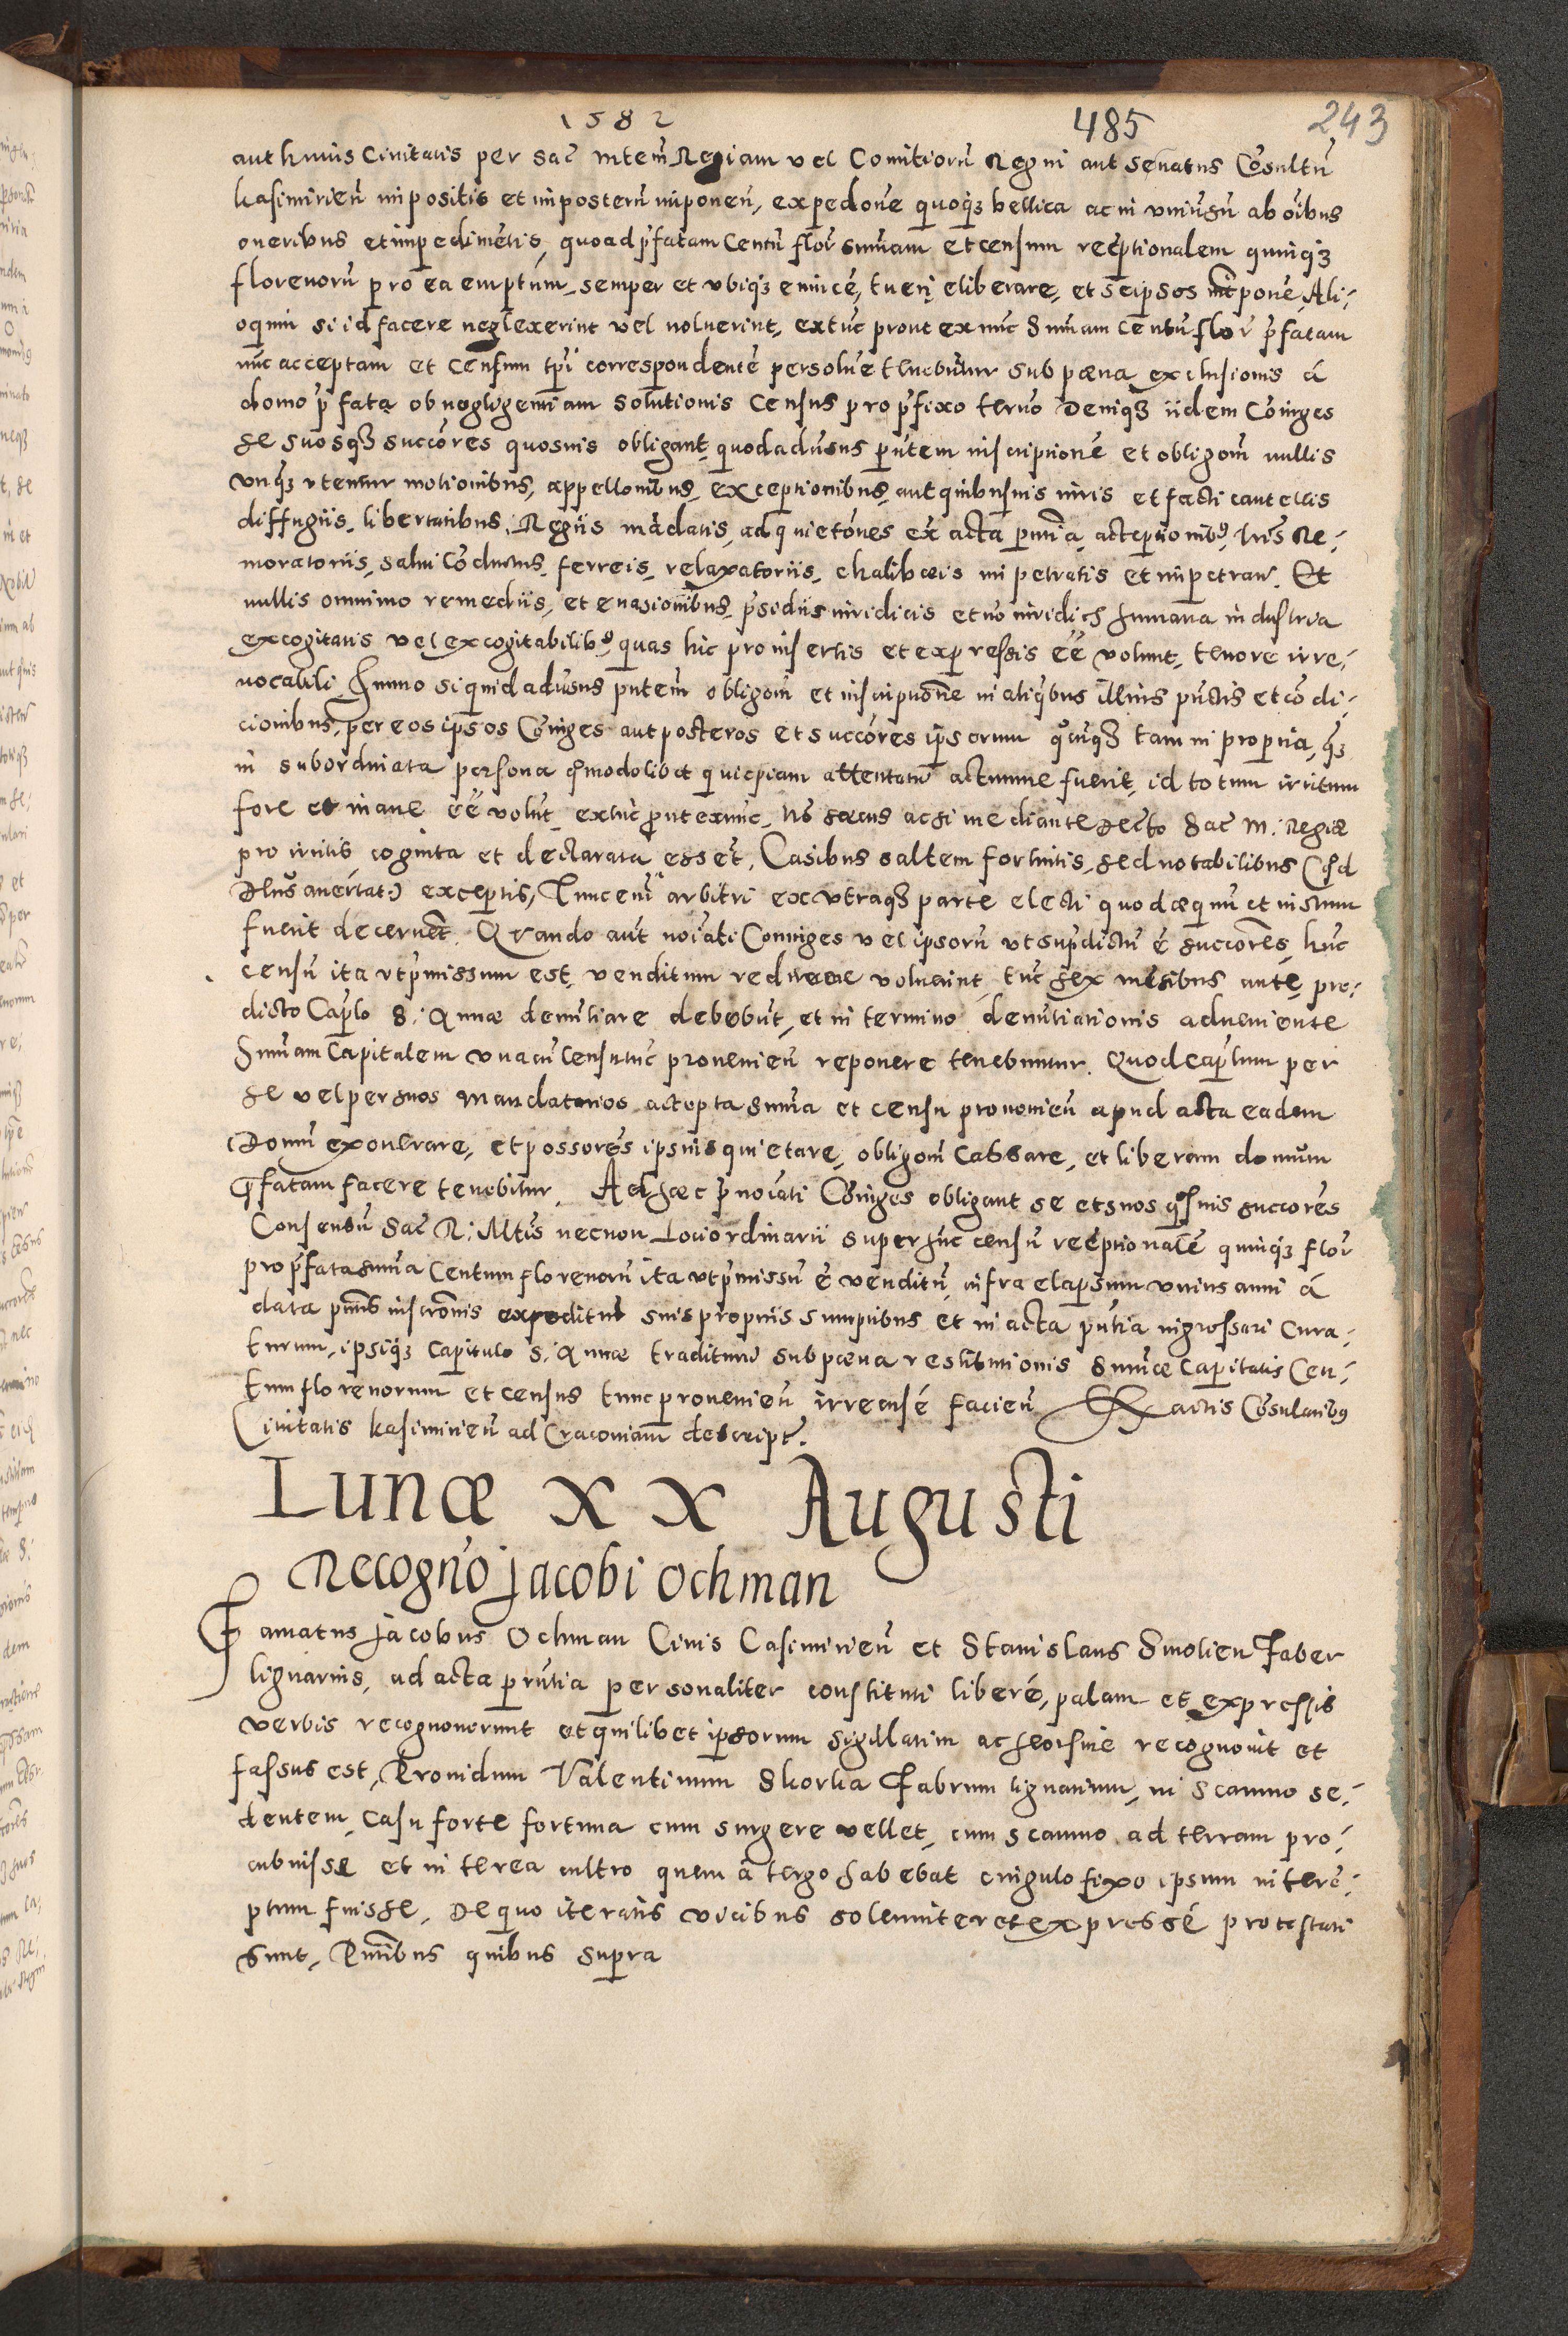 1582 485 243
aut huius Ciuitatis per Sac̄ Mtem̄ Regiam vel Comitiorū Regni aut Senatus Cōsultū
kasimirien̄ impositis et imposterū imponen̄, expedōne quoqꝫ bellica ac in vniūsū ab oībus
oneribus et impedimētis, quoad p̄fatam Centū flor̄ sum̄am et censum reēptionalem quinqꝫ
florenorū pro ea emptum, semper et vbiqꝫ euincē, tueri eliberare, et seipsos int̄ponē, Ali-
oquin si id facere neglexerint vel noluerint, extūc prout ex nūc Sum̄am Centū flor̄ p̄fatam
nūc acceptam et Censum tp̄i correspondentē persoluē tenebūtur sub pœna exclusionis á
domo p̄fata ob negligentiam solutionis Census pro p̄fixo termō Deniqꝫ iidem Cōiuges
se suosqꝫ succōres quosuis obligant, quod adūsus pūtem inscriptionē et obligōm̄ nullis
vnqꝫ vtentur motionibus, appellōnibus, exceptionibus, aut quibusuis iuris et facti cautelis
diffugiis, libertatibus, Regiis mādatis, ad quietōnes ex acta pūtia, acceptionibꝰ, Lr̄is Re-
moratoriis, salui Cōductus, ferreis, relaxatoriis, chalibæis impetratis et impetran̄. Et
nullis omnino remediis, et euasionibus, p̄sidiis iuridicis et nō iuridicis humana industria
excogitatis vel excogitabilibꝰ, quas hic pro insertis et expressis eē volunt, tenore irre-
uocabili. Immo si quid adūsus pūtem obligōm̄ et inscriptionē in aliqbus illius pūctis et cōdi-
cionibus, per eos ipsos Cōiuges aut posteros et succōres ipsorum qūcqꝫ tam in propria, qꝫ
in subordinata persona qͦmodolibet quicpiam attentatū actumue fuerit, id totum irritum
fore et inane eē volūt, extūc prout exnūc, nō secus ac si mediante Decto Sac̄ M. Regiæ
pro irritis cognita et declarata essēt, Casibus saltem fortuitis, sed notabilibus (qd
Deus auertat) exceptis, Tunc enī arbitri ex vtraqꝫ parte electi quod æquū et iustum
fuerit decernēt. Quando aūt noiati Coniuges vel ipsorū vt sup̄dictū ē succores, hūc
censū ita vt p̄missum est, venditum redimere voluerint, tūc sex mēsibus ante, præ-
dicto Caplo S. Annæ denūtiare debebūt, et in termino denūtiationis adueniente
Sum̄am Capitalem vna cū Censu tūc prouenien̄ reponere tenebuntur. Quod capl̄um per
se vel per suos Mandatarios accepta sum̄a et censu prouenien̄ apud acta eadem
Domū exonerare, et possorēs ipsius quietare, obligom̄ Cassare, et liberam domum
p̄fatam facere tenebitur. Ad hæc p̄noiati Cōiuges obligant se et suos qͦsuis succores
Consensū Sac̄ R. Mt̄is necnon Loci ordinarii super hūc censū reēptionalē quinqꝫ flor̄
pro p̄fata sum̄a Centum florenorū ita vt p̄missū ē venditū, infra elapsum vnius anni á
data pn̄tis inscrōnis expeditur̄ suis propriis sumptibus et in acta pūtia ingrossari Cura-
turum, ipsiqꝫ Capitulo S. Annæ traditur̄ sub pœna restitutionis Sum̄æ Capitalis Cen-
tum florenorum et census tunc prouenien̄ irrecusē facien̄ Ex actis Cōsularibꝰ
Ciuitatis kasimirien̄ ad Cracouiam descript̄.
Lunæ XX Augusti
Recogn̄o Jacobi Ochman
Famatus Jacobus Ochman Ciuis Casimirien̄ et Stanislaus Smolien Faber
lignarius, ad acta prūtia personaliter constituti liberé, palam et expressis
verbis recognouerunt et quilibet ipsorum sigillatim ac seorsiue recognouit et
fassus est, Prouidum Valentinum Skorka Fabrum lignarium, in Scamno se-
dentem, Casu forte fortuna cum surgere vellet, cum scamno ad terram pro-
cubuisse et interea cultro quem à tergo habebat cingulo fixo ipsum interē-
ptum fuisse, De quo iteratis vicibus solenniter et expressé protestati
sunt, Pn̄tibus quibus supra